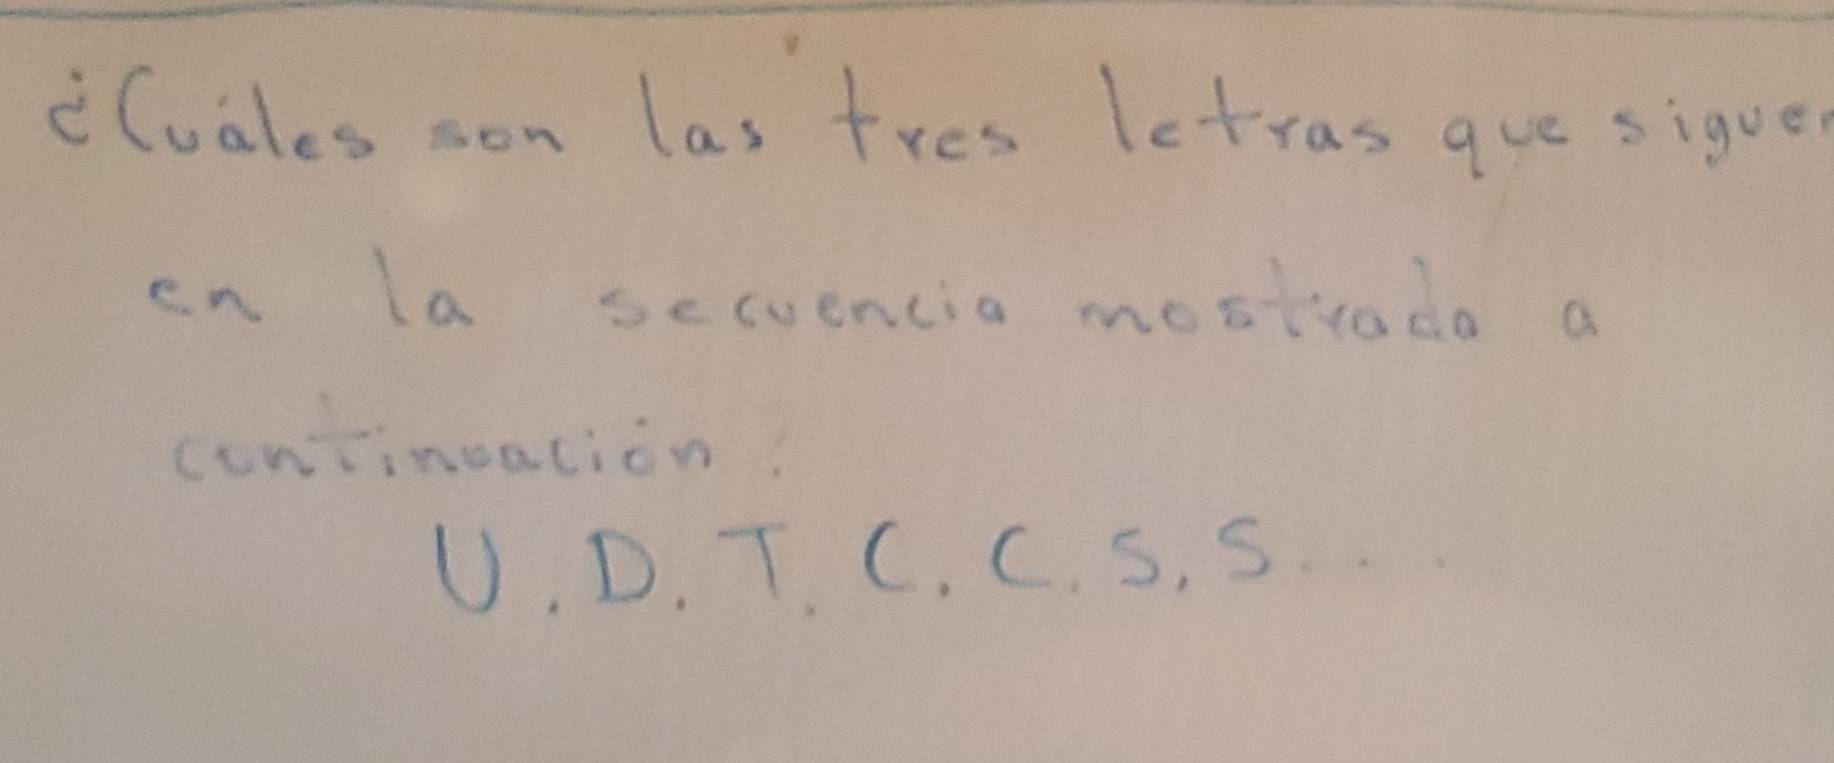 ¿Cuáles son las tres letras que siguen
en la secuencia mostrada a
continuación:
U. D. T. C. C. S. S. . . .